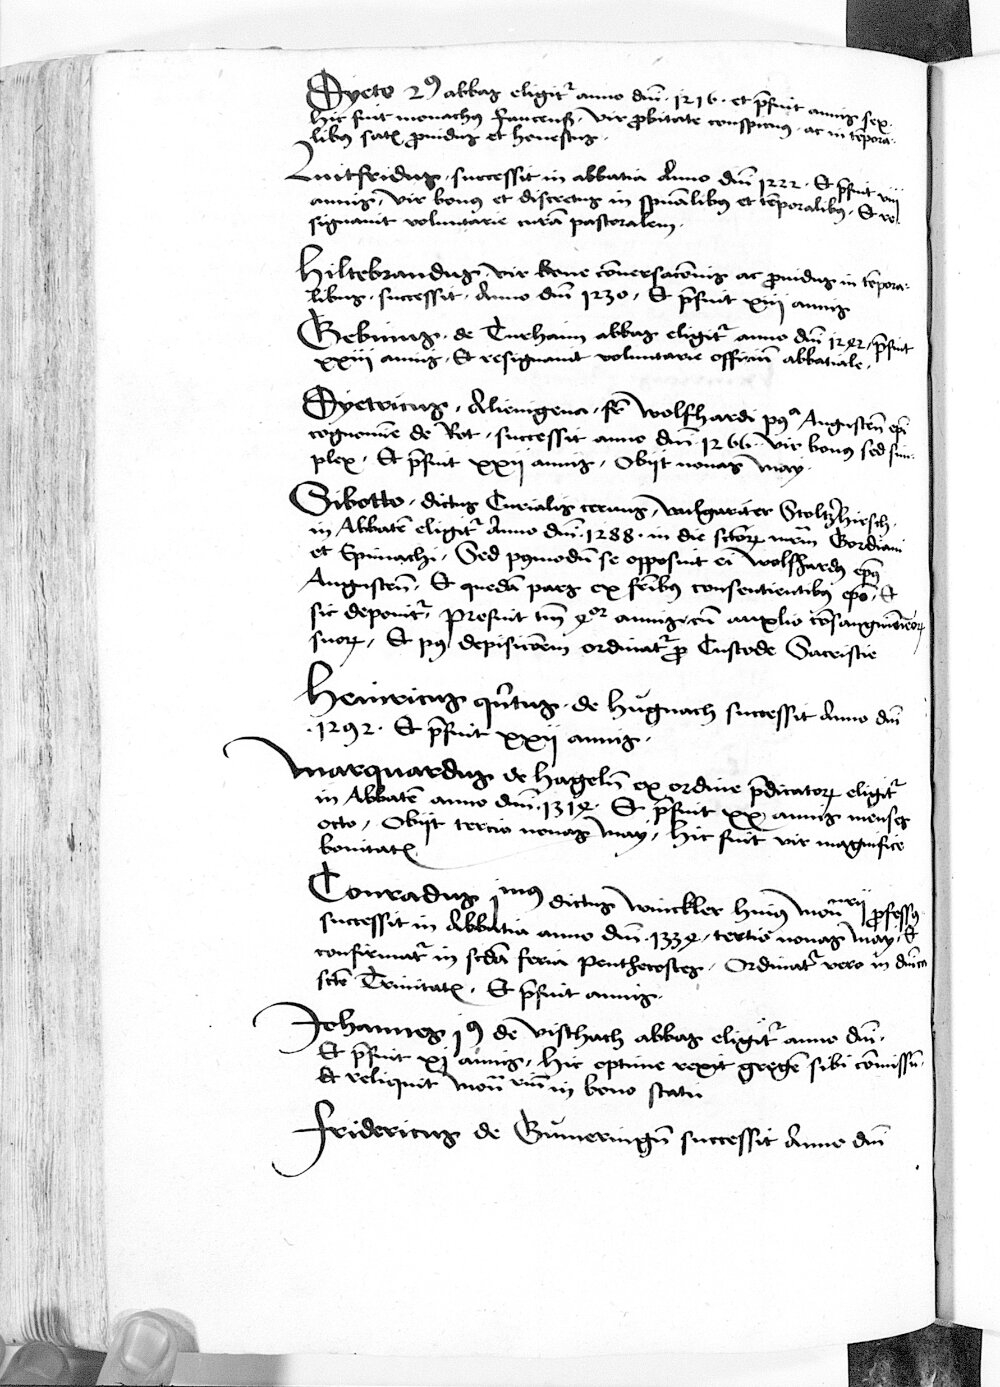 Dyeto 2⁹ abbas eligit͛ anno dn̄i · 1216 · et p̄fuit annis sex ·
hic fuit monachus faucens̄ · vir ꝓbitate conspicuus · ac in tēpora-
libus satis ꝓuidus et honestus ·
Luitfridus · successit in abbatia Anno dn̄i 1222 · Et p̄fuit viij
annis, vir bonus et discretus in spūalibus et tēporalibus · Et re-
signauit voluntarie curā pastoralem ·
Hiltebrandus · vir bone cōuersacōnis ac ꝓuidus in tēpora-
libus · successit · Anno dn̄i 1230 · Et p̄fuit xiij annis
Gebinus · de Turhaim abbas eligit͛ anno dn̄i 1242 · p̄fuit
xxiij annis · Et resignauit voluntarie officiū abbatiale ·
Dyetricus · Alienigena · fr̄ Wolfhardi pꝰᵃ Augusteñ epī
cognomīe de Rot · successit anno dn̄i 1266 · vir bonus sed sim-
plex · Et p̄fuit xxij annis · Obijt nonas May ·
Sibotto · dictus Curialis ceruus, vulgariter Stoltzhirsch ·
in Abbatē eligit͛ Anno dn̄i · 1288 · in die sctōꝝ mr̄m Gordiani
et Epimachi · Sed pꝰmodū se opposuit ei Wolfhardꝰ ep̄us
Augusteñ · Et quedā pars ex fr̄ibus consentientibus ep̄o · Et
sic deponit͛ · Prefuit tn̄ 4ᵒʳ annis, cū auxlio cōsanguineoꝝ
suoꝝ · Et pꝰ depisicōem ordinat͛ ꝓ Custode Sacristie
Heinricus qn̄tus · de Hugnach successit Anno dn̄i
· 1292 · Et p̄fuit xxij annis ·
Marquardus de Hageln̄ ex ordine p̄dicatoꝝ eligit͛
in Abbatē anno dn̄i · 1314 · Et p̄fuit xx annis menses
octo · Obijt tercio nonas May · Hic fuit vir magnifice
bonitatis
Conradus jmus dictus Winckler huius mon̄rij ꝓfessus
successit in Abbatia anno dn̄i · 1334 · tertio nonas May · Et
confirmat͛ in scd̄a feria penthecostes · Ordinat͛ vero in dn̄ica
scte Trinitatis · Et p̄fuit annis ·
Johannes j⁹ de Vischach abbas eligit͛ anno dn̄i ·
Et p̄fuit xj annis · Hic optime rexit gregē sibi cōmissū ·
Et reliquit mon̄riū in bono statu
Fridericus de Gumeringn̄ successit Anno dn̄i